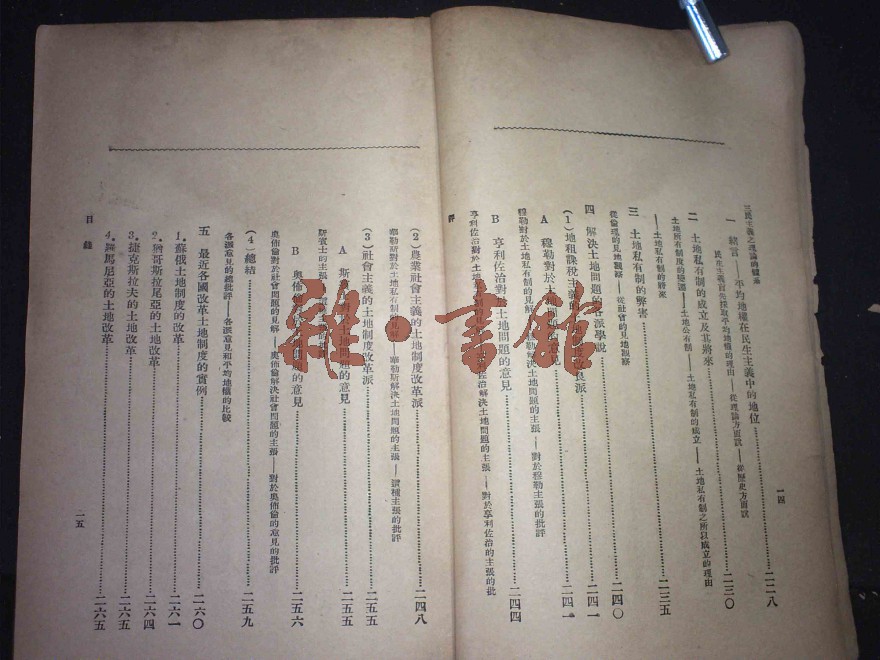 三民主義之理論的體系
一四
一 緒言——平均地權在民生主義中的地位……一二八
民生主義首先採取平均地權的理由——從理論方面說——從歷史方面說
二 土地私有制的成立及其將來……二三〇
土地所有制度的變遷——土地公有制——土地私有制的成立——土地私有制之所以成立的理由
——土地私有制的將來
三 土地私有制的弊害……二三五
從倫理的見地觀察——從社會的見地觀察
四 解決土地問題的各派學說……二四〇
(1)地租課稅主義 改良派……二四一
A 穆勒對於土地問題的意見……二四一
穆勒對於土地私有制的見解 勒解決土地問題的主張——對於穆勒主張的批評
B 亨利佐治對 土地問題的意見……二四四
亨利佐治對於土地 佐治解決土地問題的主張——對於亨利佐治的主張的批
評
(2)農業社會主義的土地制度改革派……二四八
華勒斯對於土地私有制的見 華勒斯解決土地問題的主張——對於 主張的批評
(3)社會主義的土地制度改革派……二五五
A 斯 土地問題的意見……二五五
斯賓士的主張
B 奧佛倫 問題的意見……二五六
奧佛倫對於社會問題的見解——奧佛倫解決社會問題的主張——對於奧佛倫的意見的批評
(4)總結……二五九
各派意見的總批評——各派意見和平均地權的比較
五 最近各國改革土地制度的實例……二六〇
1.蘇俄土地制度的改革……二六一
2.猶哥斯拉尾亞的土地改革……二六四
3.捷克斯拉夫的土地改革……二六五
4.羅馬尼亞的土地改革……二六五
目錄
一五
雜·書館